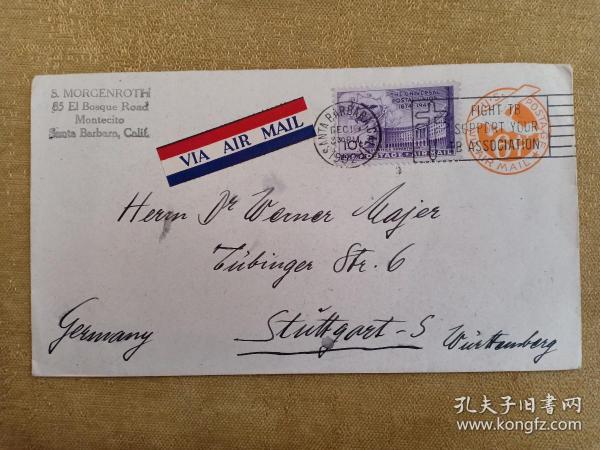 S. MORGENROTH
85 El Bosque Road
Montecito
Santa Barbara, Calif.
VIA AIR MAIL
THE UNIVERSAL
POSTAL UNION
1874 1949
SANTA BARBARA, CALIF.
DEC 19
FIGHT TB
SUPPORT YOUR
TB ASSOCIATION
POSTAGE
AIR MAIL
Herrn Dr Werner Majer
Tübinger Str. 6
Stuttgart-S
Germany
Württemberg
孔夫子旧书网
www.kongfz.com